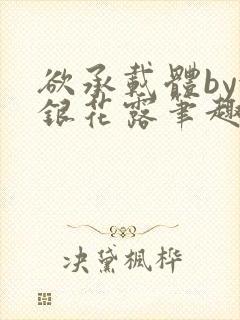 欲承載體by
銀花露筆趣
决黛枫桦